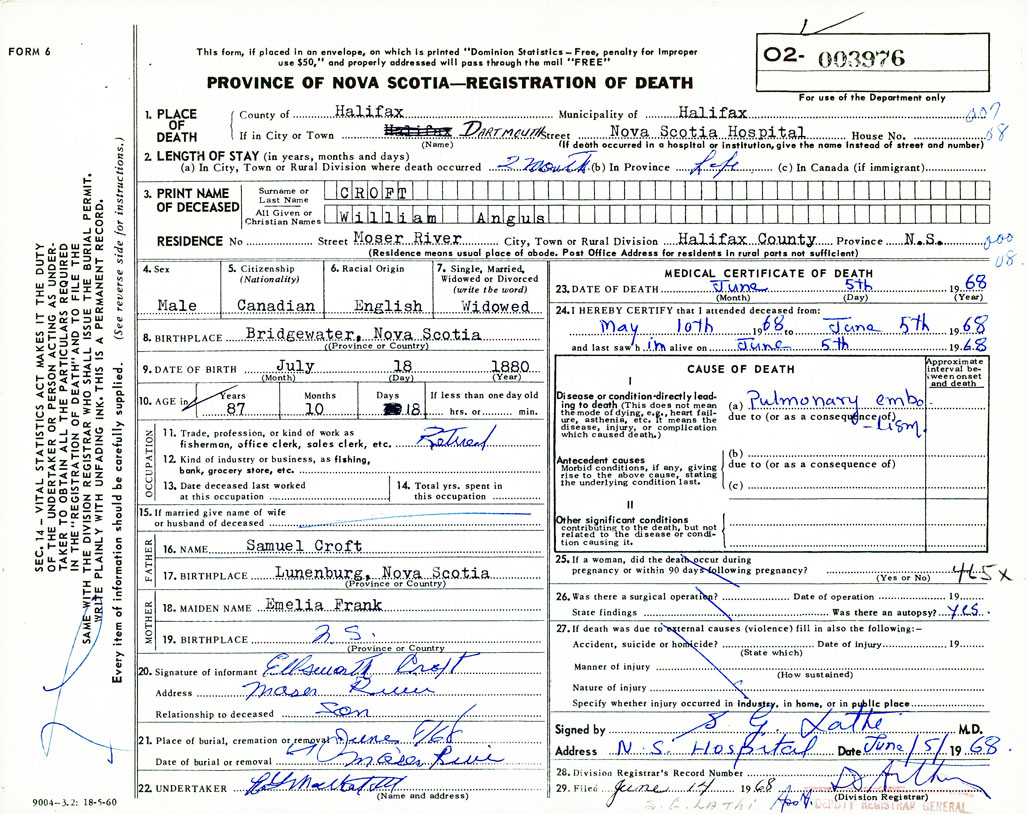 FORM 6
This form, if placed in an envelope, on which is printed "Dominion Statistics – Free, penalty for improper
use $50," and properly addressed will pass through the mail "FREE"
PROVINCE OF NOVA SCOTIA—REGISTRATION OF DEATH
O2- 003976
For use of the Department only
1. PLACE OF DEATH
County of Halifax Municipality of Halifax 007
If in City or Town Halifax DARTMOUTH Street Nova Scotia Hospital House No. 08
(Name) (If death occurred in a hospital or institution, give the name instead of street and number)
2. LENGTH OF STAY (in years, months and days)
(a) In City, Town or Rural Division where death occurred 2 Month (b) In Province Life (c) In Canada (if immigrant)
3. PRINT NAME OF DECEASED
Surname or Last Name CROFT
All Given or Christian Names William Angus
RESIDENCE No Street Moser River City, Town or Rural Division Halifax County Province N.S. 000
(Residence means usual place of abode. Post Office Address for residents in rural parts not sufficient) 08.
4. Sex
Male
5. Citizenship
(Nationality)
Canadian
6. Racial Origin
English
7. Single, Married,
Widowed or Divorced
(write the word)
Widowed
8. BIRTHPLACE Bridgewater, Nova Scotia
((Province or Country)
9. DATE OF BIRTH July 18 1880
(Month) (Day) (Year)
10. AGE in Years Months Days If less than one day old
87 10 18 hrs. or min.
OCCUPATION
11. Trade, profession, or kind of work as
fisherman, office clerk, sales clerk, etc. Retired
12. Kind of industry or business, as fishing,
bank, grocery store, etc.
13. Date deceased last worked
at this occupation
14. Total yrs. spent in
this occupation
15. If married give name of wife
or husband of deceased
FATHER
16. NAME Samuel Croft
17. BIRTHPLACE Lunenburg, Nova Scotia
(Province or Country)
MOTHER
18. MAIDEN NAME Emelia Frank
19. BIRTHPLACE N.S.
(Province or Country
20. Signature of informant Ellsworth Croft
Address Moser River
Relationship to deceased son
21. Place of burial, cremation or removal June 8/68
Date of burial or removal Moser River
22. UNDERTAKER
(Name and address)
9004—3.2: 18-5-60
MEDICAL CERTIFICATE OF DEATH
23. DATE OF DEATH June 5th 1968
(Month) (Day) (Year)
24. I HEREBY CERTIFY that I attended deceased from:
May 10th 1968 to June 5th 1968
and last saw him alive on June 5th 1968
CAUSE OF DEATH
Approximate
interval be-
tween onset
and death
I
Disease or condition directly lead-
ing to death (This does not mean
the mode of dying, e.g., heart fail-
ure, asthenia, etc. It means the
disease, injury, or complication
which caused death.)
(a) Pulmonary embo-
due to (or as a consequence of)
-lism.
Antecedent causes
Morbid conditions, if any, giving
rise to the above cause, stating
the underlying condition last.
(b)
due to (or as a consequence of)
(c)
II
Other significant conditions
contributing to the death, but not
related to the disease or condi-
tion causing it.
25. If a woman, did the death occur during
pregnancy or within 90 days following pregnancy?
(Yes or No) 465 x
26. Was there a surgical operation? Date of operation 19
State findings Was there an autopsy? Yes.
27. If death was due to external causes (violence) fill in also the following:–
Accident, suicide or homicide? Date of injury 19
(State which)
Manner of injury
(How sustained)
Nature of injury
Specify whether injury occurred in Industry, in home, or in public place
Signed by S. G. Lathi M.D.
Address N.S. Hospital Date June/5/1968.
28. Division Registrar's Record Number
29. Filed June 14 1968
(Division Registrar)
S. E. LATHI
DEPUTY REGISTRAR GENERAL
SEC. 14 – VITAL STATISTICS ACT MAKES IT THE DUTY
OF THE UNDERTAKER OR PERSON ACTING AS UNDER-
TAKER TO OBTAIN ALL THE PARTICULARS REQUIRED
IN THE "REGISTRATION OF DEATH" AND TO FILE THE
SAME WITH THE DIVISION REGISTRAR WHO SHALL ISSUE THE BURIAL PERMIT.
WRITE PLAINLY WITH UNFADING INK. THIS IS A PERMANENT RECORD.
Every item of information should be carefully supplied. (See reverse side for instructions.)